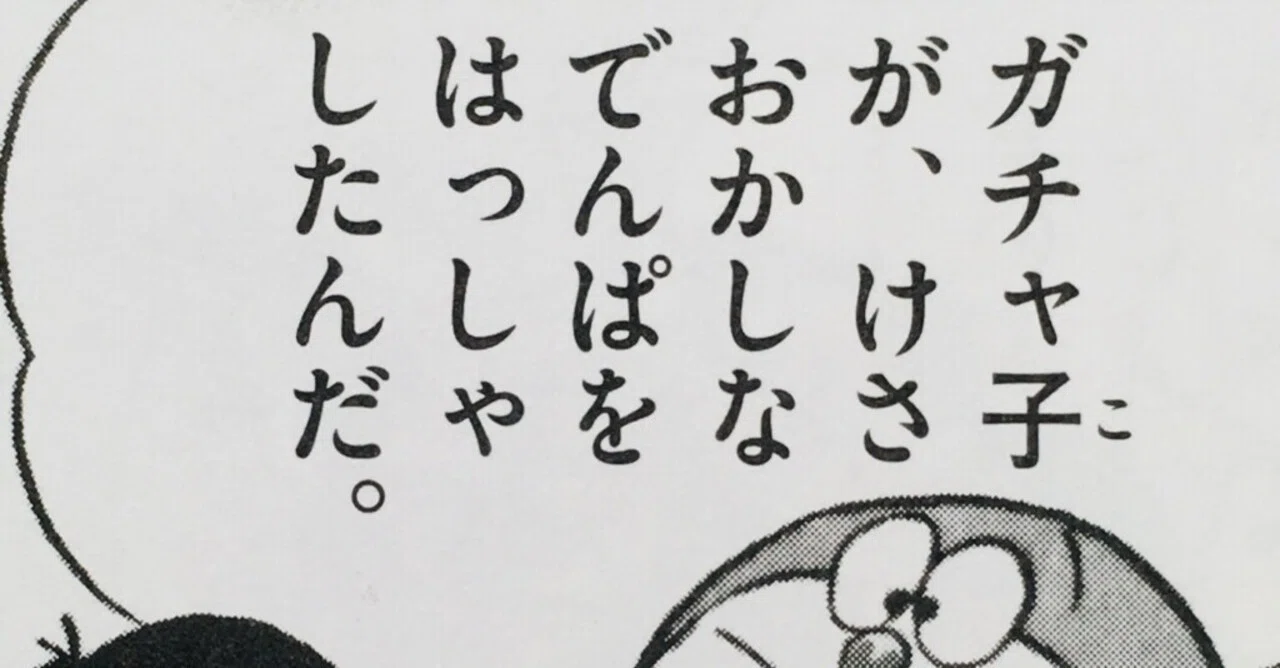 ガチャ子
が、けさ
おかしな
でんぱを
はっしゃ
したんだ。
こ